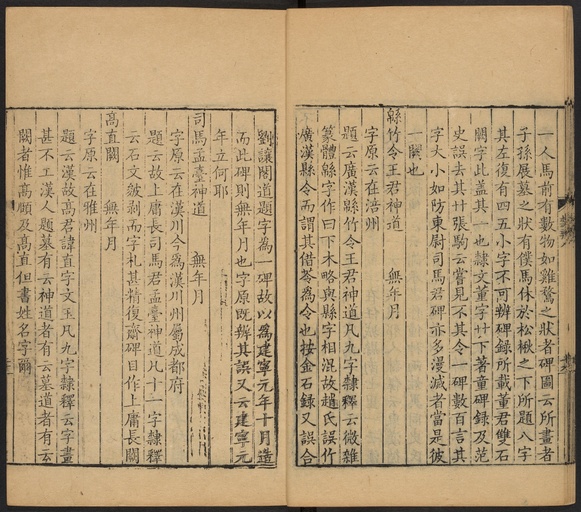 一人馬前有數物如雞鶩之狀者碑圖云所畫者
子孫展墓之狀有僕馬休於松楸之下所題八字
其左復有四五小字不可辨碑錄所載董君雙石
闕字此葢其一也隸文董字廿下著童碑錄及范
史誤去其廿張駒云嘗見不其令一碑數百言其
字大小如防東尉司馬君碑亦多漫滅者當是彼
一闕也
緜竹令王君神道 無年月
字原云在涪州
題云廣漢緜竹令王君神道凡九字隸釋云微雜
篆體緜字作曰下木略與縣字相混故趙氏誤作
廣漢縣令而謂其借苓為令也按金石錄又誤合
劉讓閣道題字為一碑故以為建寧元年十月造
而此碑則無年月也字原既辨其誤又云建寧元
年立何耶
司馬孟臺神道 無年月
字原云在漢川今為漢川州屬成都府
題云故上庸長司馬君孟臺神道凡十一字隸釋
云石文皴剥而字札甚精復齋碑目作上庸長闕
高直闕 無年月
字原云在雅州
題云漢故高君諱直字文玉凡九字隸釋云字畫
甚不工漢人題墓有云神道者有云墓道者有云
闕者惟高頤及高直但書姓名字爾